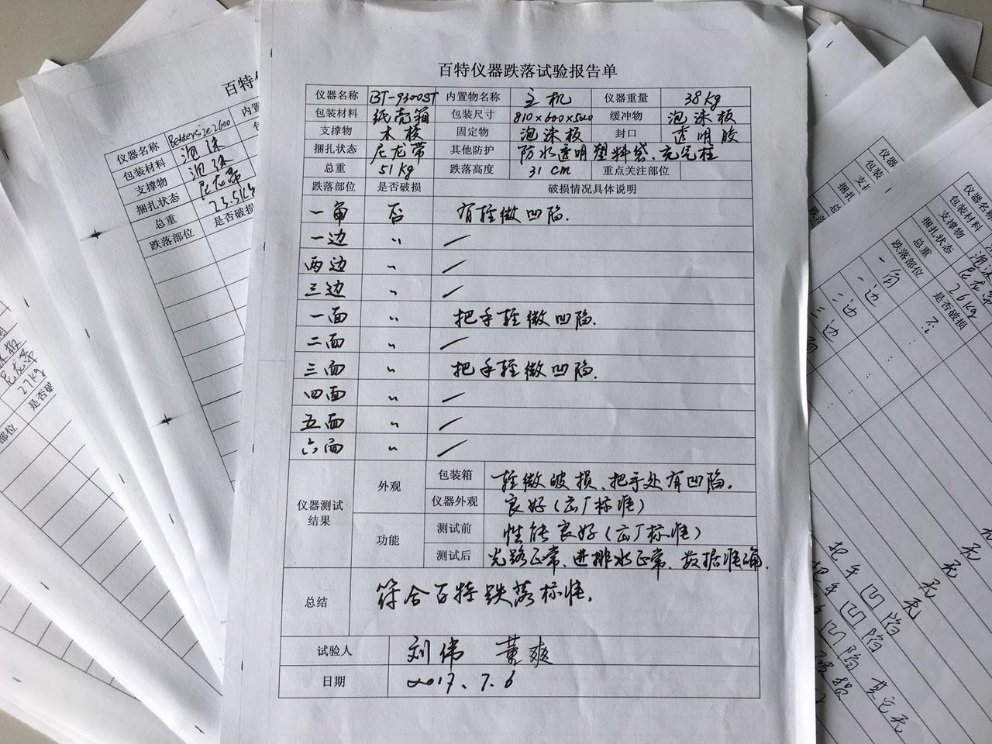 百特仪器跌落试验报告单
仪器名称 BT-9300ST 内置物名称 主机 仪器重量 38kg
包装材料 纸壳箱 包装尺寸 810×600×500 缓冲物 泡沫板
支撑物 木楼 固定物 泡沫板 封口 透明胶
捆扎状态 尼龙带 其他防护 防水透明塑料袋、充气柱
总重 51kg 跌落高度 31cm 重点关注部位
跌落部位 是否破损 破损情况具体说明
一角 否 有轻微凹陷.
一边 〃 /
两边 〃 /
三边 〃 /
一面 〃 把手轻微凹陷.
二面 〃 /
三面 〃 把手轻微凹陷.
四面 〃 /
五面 〃 /
六面 〃 /
仪器测试结果 外观 包装箱 轻微破损、把手处有凹陷.
仪器外观 良好(出厂标准)
功能 测试前 性能良好(出厂标准)
测试后 光路正常、进排水正常、数据准确.
总结 符合百特跌落标准.
试验人 刘伟 董爽
日期 2017.7.6
百特仪
仪器名称 Bettersize2600 内置
包装材料 泡沫
支撑物 泡沫
捆扎状态 尼龙带
总重 23.5kg
跌落部位 是否破损
尼龙带
27kg
部位
仪器名称
包装材料 泡沫
支撑物
捆扎状态 尼龙
总重 26kg
跌落部位 是否破损
一角
一边
二边
三边
把手凹陷